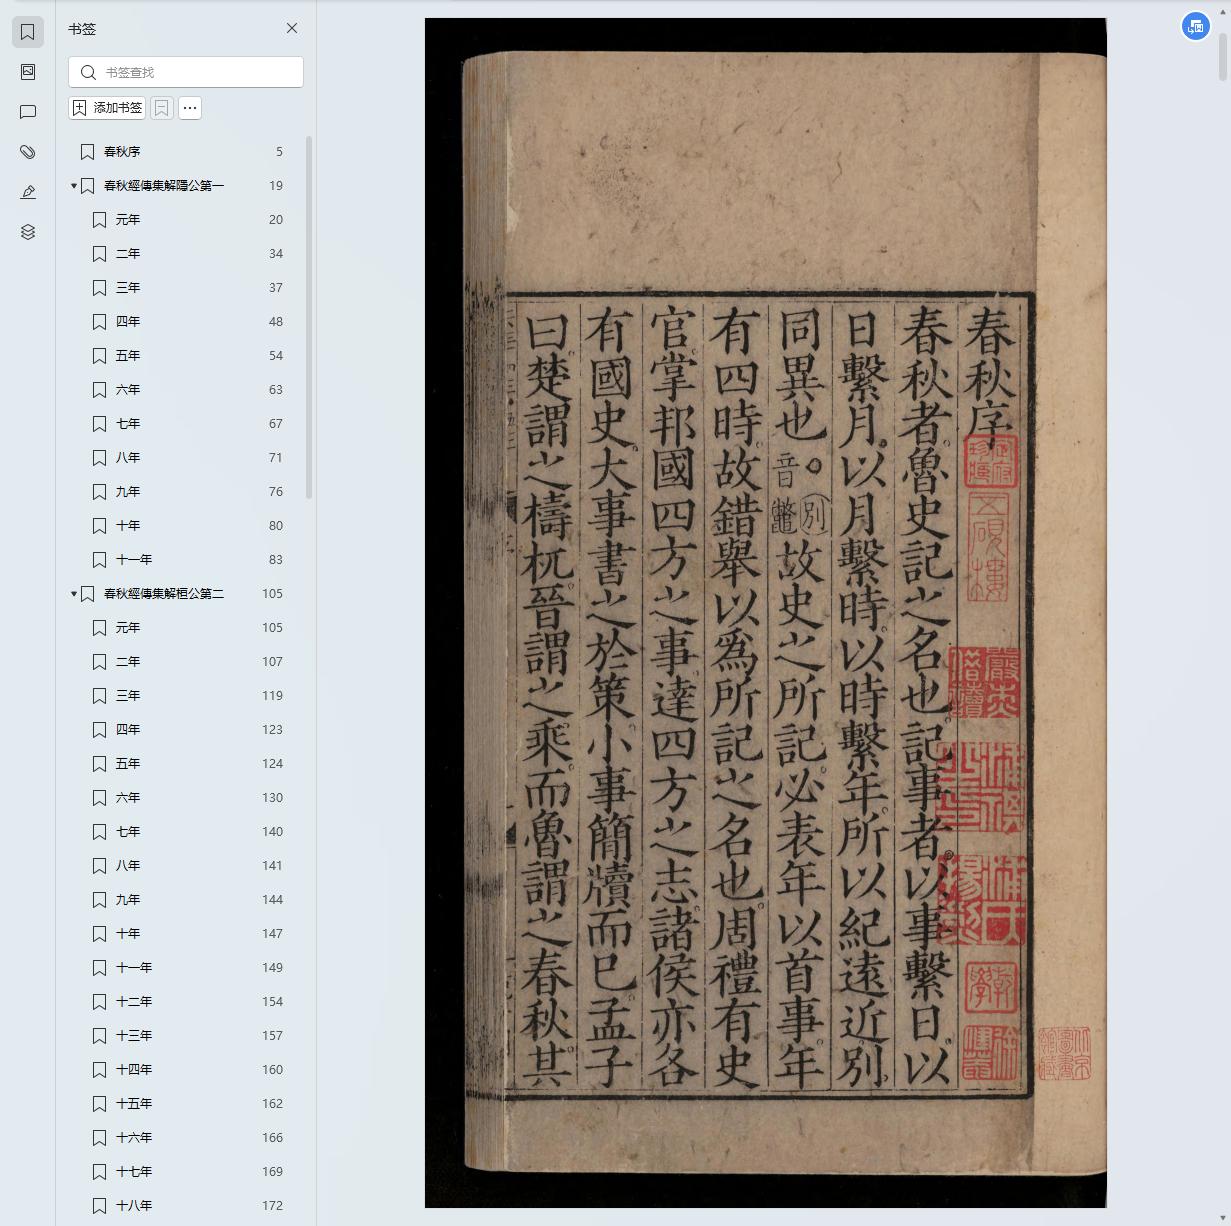 书签
书签查找
添加书签
春秋序 5
春秋經傳集解隱公第一 19
元年 20
二年 34
三年 37
四年 48
五年 54
六年 63
七年 67
八年 71
九年 76
十年 80
十一年 83
春秋經傳集解桓公第二 105
元年 105
二年 107
三年 119
四年 123
五年 124
六年 130
七年 140
八年 141
九年 144
十年 147
十一年 149
十二年 154
十三年 157
十四年 160
十五年 162
十六年 166
十七年 169
十八年 172
春秋序
春秋者魯史記之名也記事者以事繫日以
日繫月以月繫時以時繫年所以紀遠近別
同異也。別音鼈故史之所記必表年以首事年
有四時故錯舉以爲所記之名也周禮有史
官掌邦國四方之事達四方之志諸侯亦各
有國史大事書之於策小事簡牘而已孟子
曰楚謂之檮杌晉謂之乘而魯謂之春秋其
五硯樓